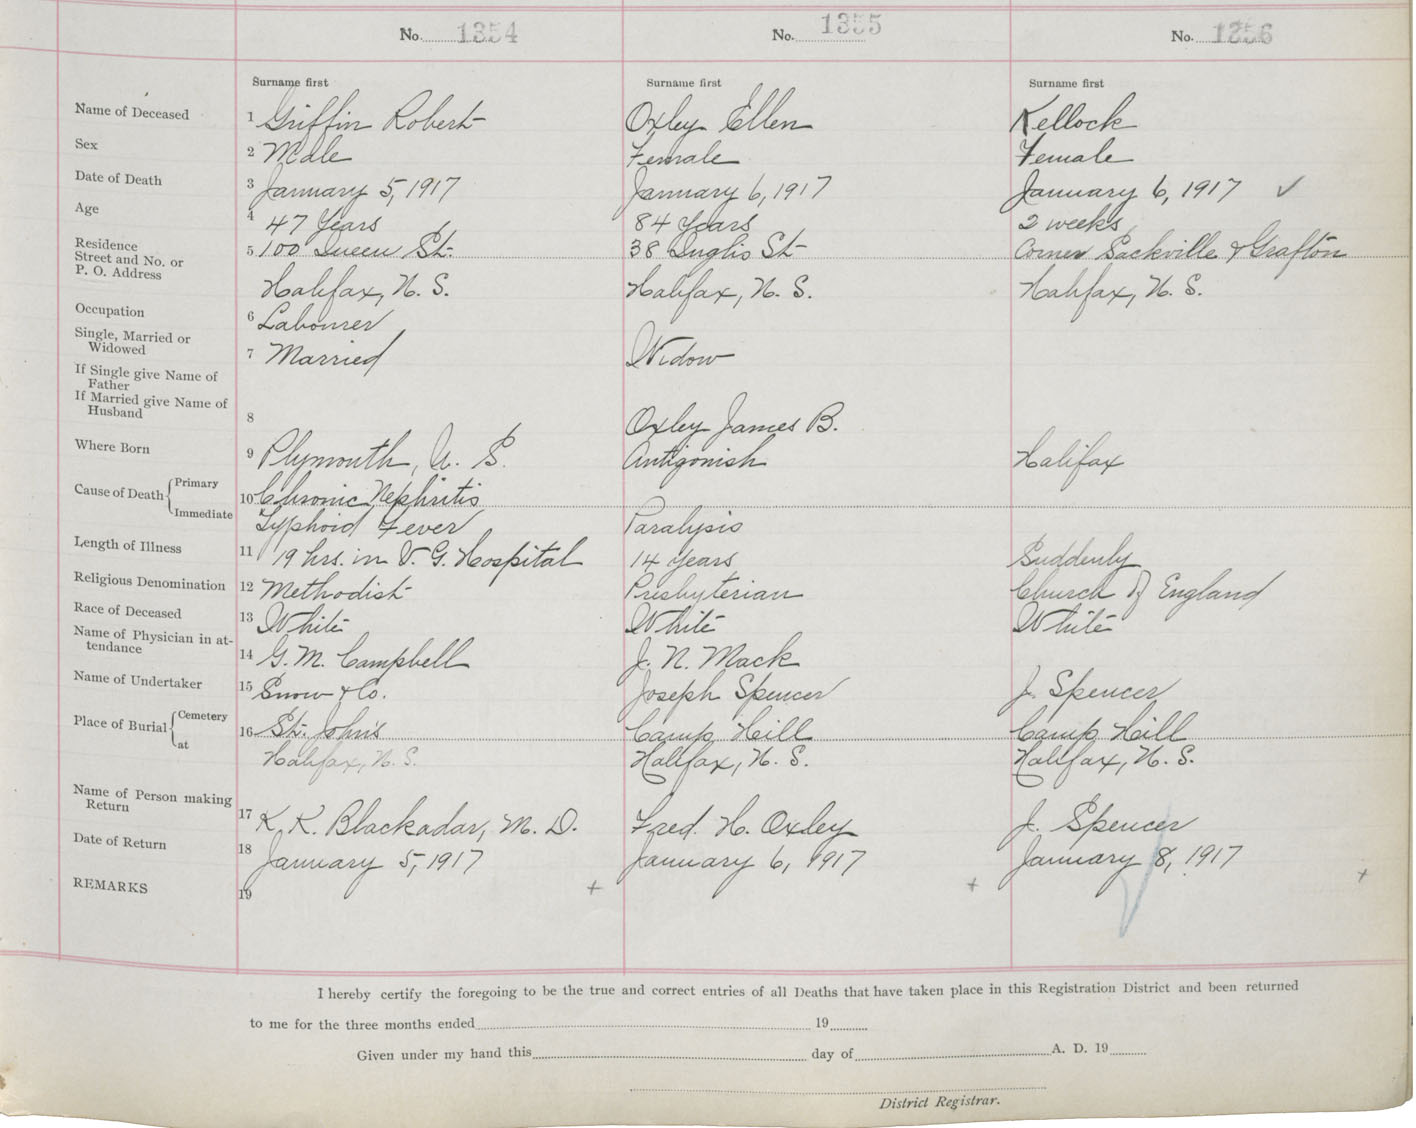 No. 1354 No. 1355 No. 1356
Surname first Surname first Surname first
Name of Deceased 1 Griffin Robert Oxley Ellen Kellock
Sex 2 Male Female Female
Date of Death 3 January 5, 1917 January 6, 1917 January 6, 1917 ✓
Age 4 47 Years 84 Years 2 weeks
Residence
Street and No. or 5 100 Queen St. 38 Inglis St Corner Sackville & Grafton
P. O. Address
Halifax, N. S. Halifax, N. S. Halifax, N. S.
Occupation 6 Labourer
Single, Married or
Widowed 7 Married Widow
If Single give Name of
Father
If Married give Name of
Husband 8 Oxley James B.
Where Born 9 Plymouth, N. S. Antigonish Halifax
Cause of Death Primary 10 Chronic Nephritis
Immediate Typhoid Fever Paralysis
Length of Illness 11 19 hrs. in V. G. Hospital 14 years Suddenly
Religious Denomination 12 Methodist Presbyterian Church of England
Race of Deceased 13 White White White
Name of Physician in at-
tendance 14 G. M. Campbell J. N. Mack
Name of Undertaker 15 Snow & Co. Joseph Spencer J. Spencer
Place of Burial Cemetery 16 St. John's Camp Hill Camp Hill
at Halifax, N. S. Halifax, N. S. Halifax, N. S.
Name of Person making
Return 17 K. K. Blackadar, M. D. Fred. H. Oxley J. Spencer
Date of Return 18 January 5, 1917 January 6, 1917 January 8, 1917
REMARKS 19 + + +
I hereby certify the foregoing to be the true and correct entries of all Deaths that have taken place in this Registration District and been returned
to me for the three months ended 19
Given under my hand this day of A. D. 19
District Registrar.